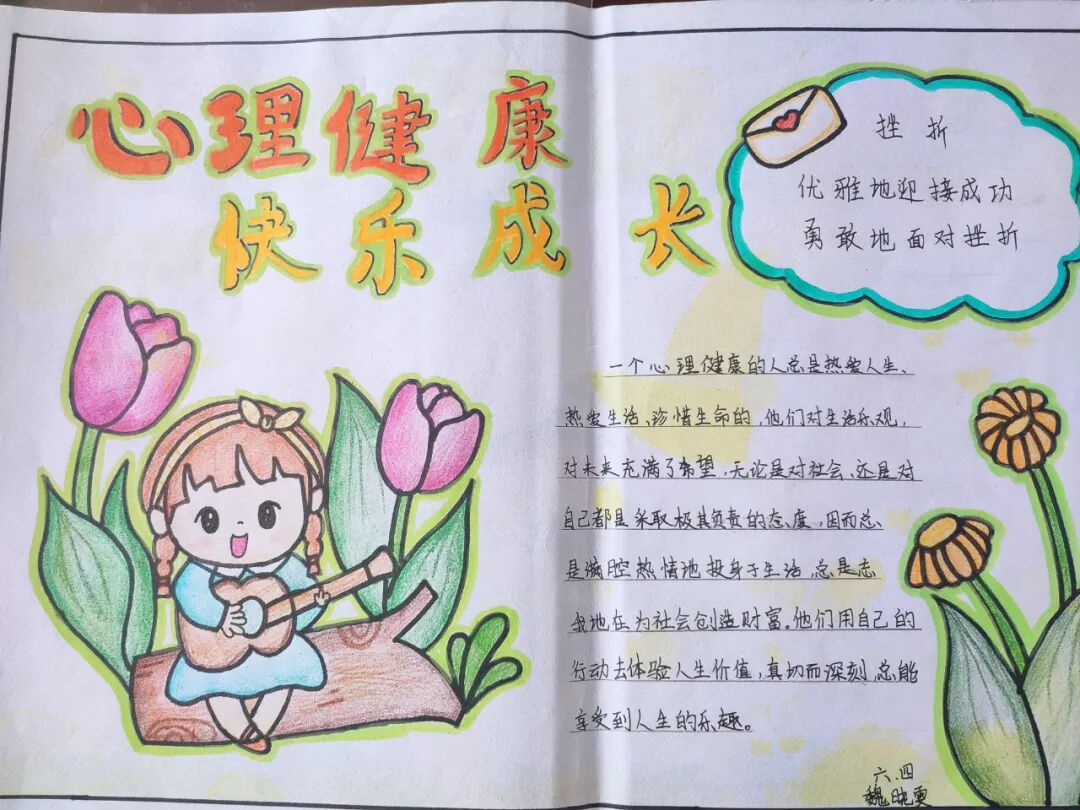 心理健康
快乐成长
挫折
优雅地迎接成功
勇敢地面对挫折
一个心理健康的人总是热爱人生、
热爱生活、珍惜生命的，他们对生活乐观，
对未来充满了希望，无论是对社会、还是对
自己都是采取极其负责的态度，因而总
是满腔热情地投身于生活，总是忘
我地在为社会创造财富。他们用自己的
行动去体验人生价值，真切而深刻，总能
享受到人生的乐趣。
六.四
魏晓雯